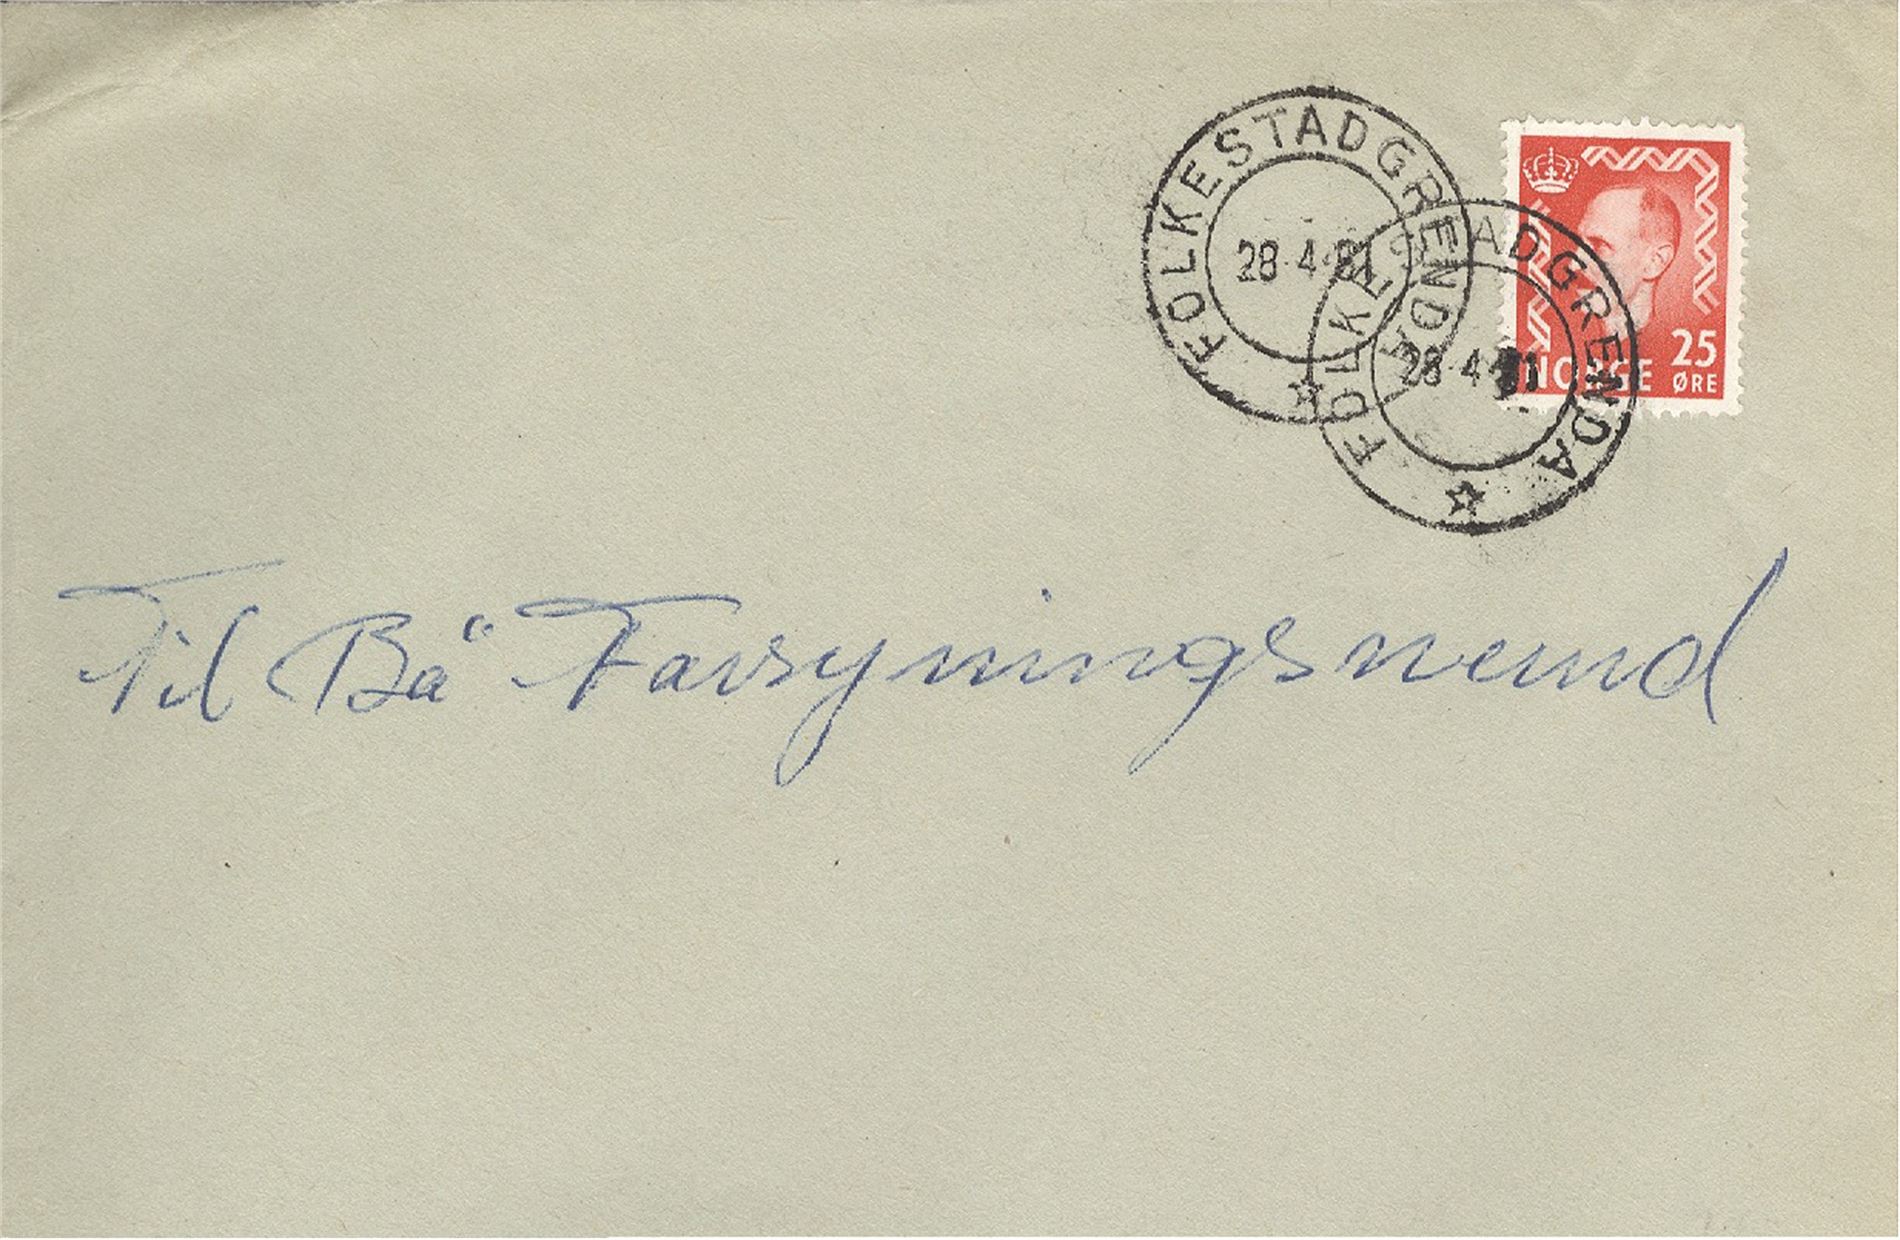 FOLKESTADGRENDA
28 4
FOLKESTADGRENDA
28 4
NORGE 25 ØRE
Til Bö Forsyningsnemd